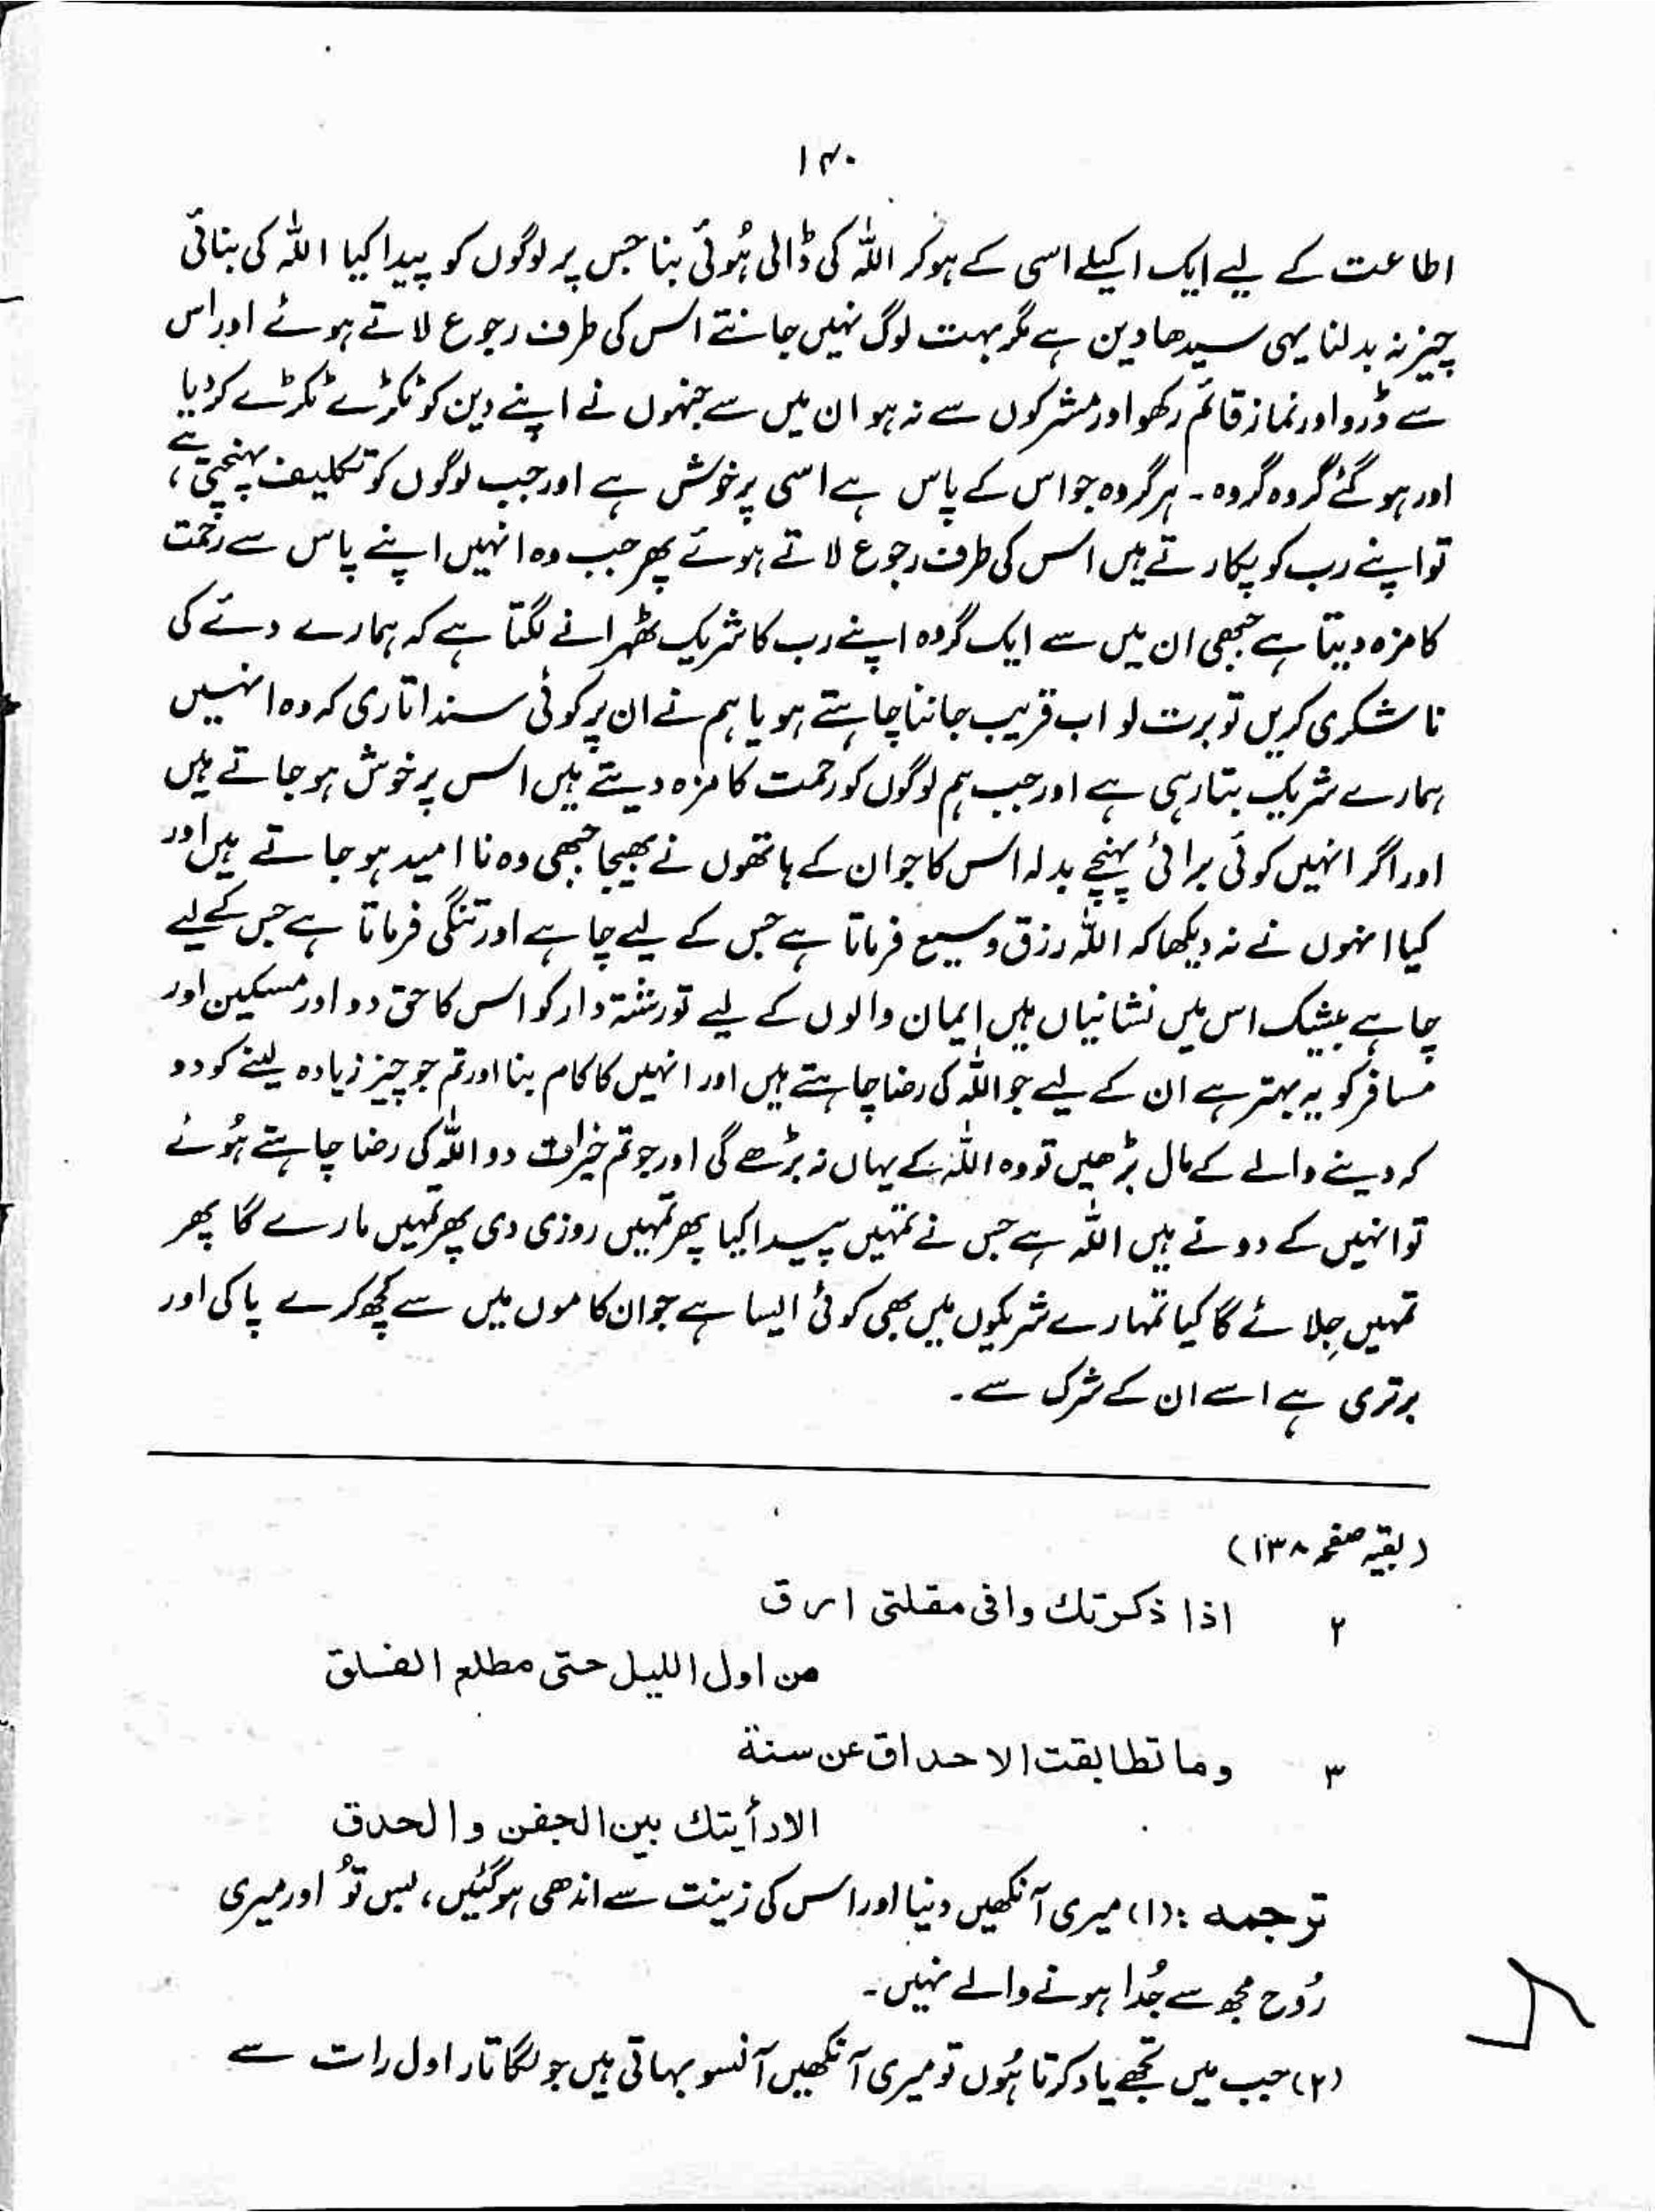 ۱۴۰
اطاعت کے لیے ایک اکیلے اسی کے ہوکر اللہ کی ڈالی ہُوئی بنا جس پر لوگوں کو پیدا کیا اللہ کی بنائی
چیز نہ بدلنا یہی سیدھا دین ہے مگر بہت لوگ نہیں جانتے اس کی طرف رجوع لاتے ہوئے اور اس
سے ڈرو اور نماز قائم رکھو اور مشرکوں سے نہ ہو ان میں سے جنہوں نے اپنے دین کو ٹکڑے ٹکڑے کر دیا
اور ہو گئے گروہ گروہ۔ ہر گروہ جو اس کے پاس ہے اسی پر خوش ہے اور جب لوگوں کو تکلیف پہنچتی ہے،
تو اپنے رب کو پکارتے ہیں اس کی طرف رجوع لاتے ہوئے پھر جب وہ انہیں اپنے پاس سے رحمت
کا مزہ دیتا ہے جبھی ان میں سے ایک گروہ اپنے رب کا شریک ٹھہرانے لگتا ہے کہ ہمارے دئے کی
ناشکری کریں تو برت لو اب قریب جاننا چاہتے ہو یا ہم نے ان پر کوئی سند اتاری کہ وہ انہیں
ہمارے شریک بتا رہی ہے اور جب ہم لوگوں کو رحمت کا مزہ دیتے ہیں اس پر خوش ہو جاتے ہیں
اور اگر انہیں کوئی برائی پہنچے بدلہ اس کا جو ان کے ہاتھوں نے بھیجا جبھی وہ نا امید ہو جاتے ہیں اور
کیا انہوں نے نہ دیکھا کہ اللہ رزق وسیع فرماتا ہے جس کے لیے چاہے اور تنگی فرماتا ہے جس کے لیے
چاہے بیشک اس میں نشانیاں ہیں ایمان والوں کے لیے تو رشتہ دار کو اس کا حق دو اور مسکین اور
مسافر کو یہ بہتر ہے ان کے لیے جو اللہ کی رضا چاہتے ہیں اور انہیں کا کام بنا اور تم جو چیز زیادہ لینے کو دو
کہ دینے والے کے مال بڑھیں تو وہ اللہ کے یہاں نہ بڑھے گی اور جو تم خیرات دو اللہ کی رضا چاہتے ہُوئے
تو انہیں کے دونے ہیں اللہ ہے جس نے تمہیں پیدا کیا پھر تمہیں روزی دی پھر تمہیں مارے گا پھر
تمہیں جِلائے گا کیا تمہارے شریکوں میں بھی کوئی ایسا ہے جو ان کاموں میں سے کچھ کرے پاکی اور
برتری ہے اسے ان کے شرک سے۔
(بقیہ صفحہ ۱۳۸)
۲ اذا ذكرتك وافى مقلتى ارق
من اول الليل حتى مطلع الفلق
۳ وما تطابقت الاحداق عن سنة
الا رأيتك بين الجفن والحدق
ترجمہ: (۱) میری آنکھیں دنیا اور اس کی زینت سے اندھی ہوگئیں، بس تُو اور میری
رُوح مجھ سے جُدا ہونے والے نہیں۔
(۲) جب میں تجھے یاد کرتا ہُوں تو میری آنکھیں آنسو بہاتی ہیں جو لگاتار اول رات سے